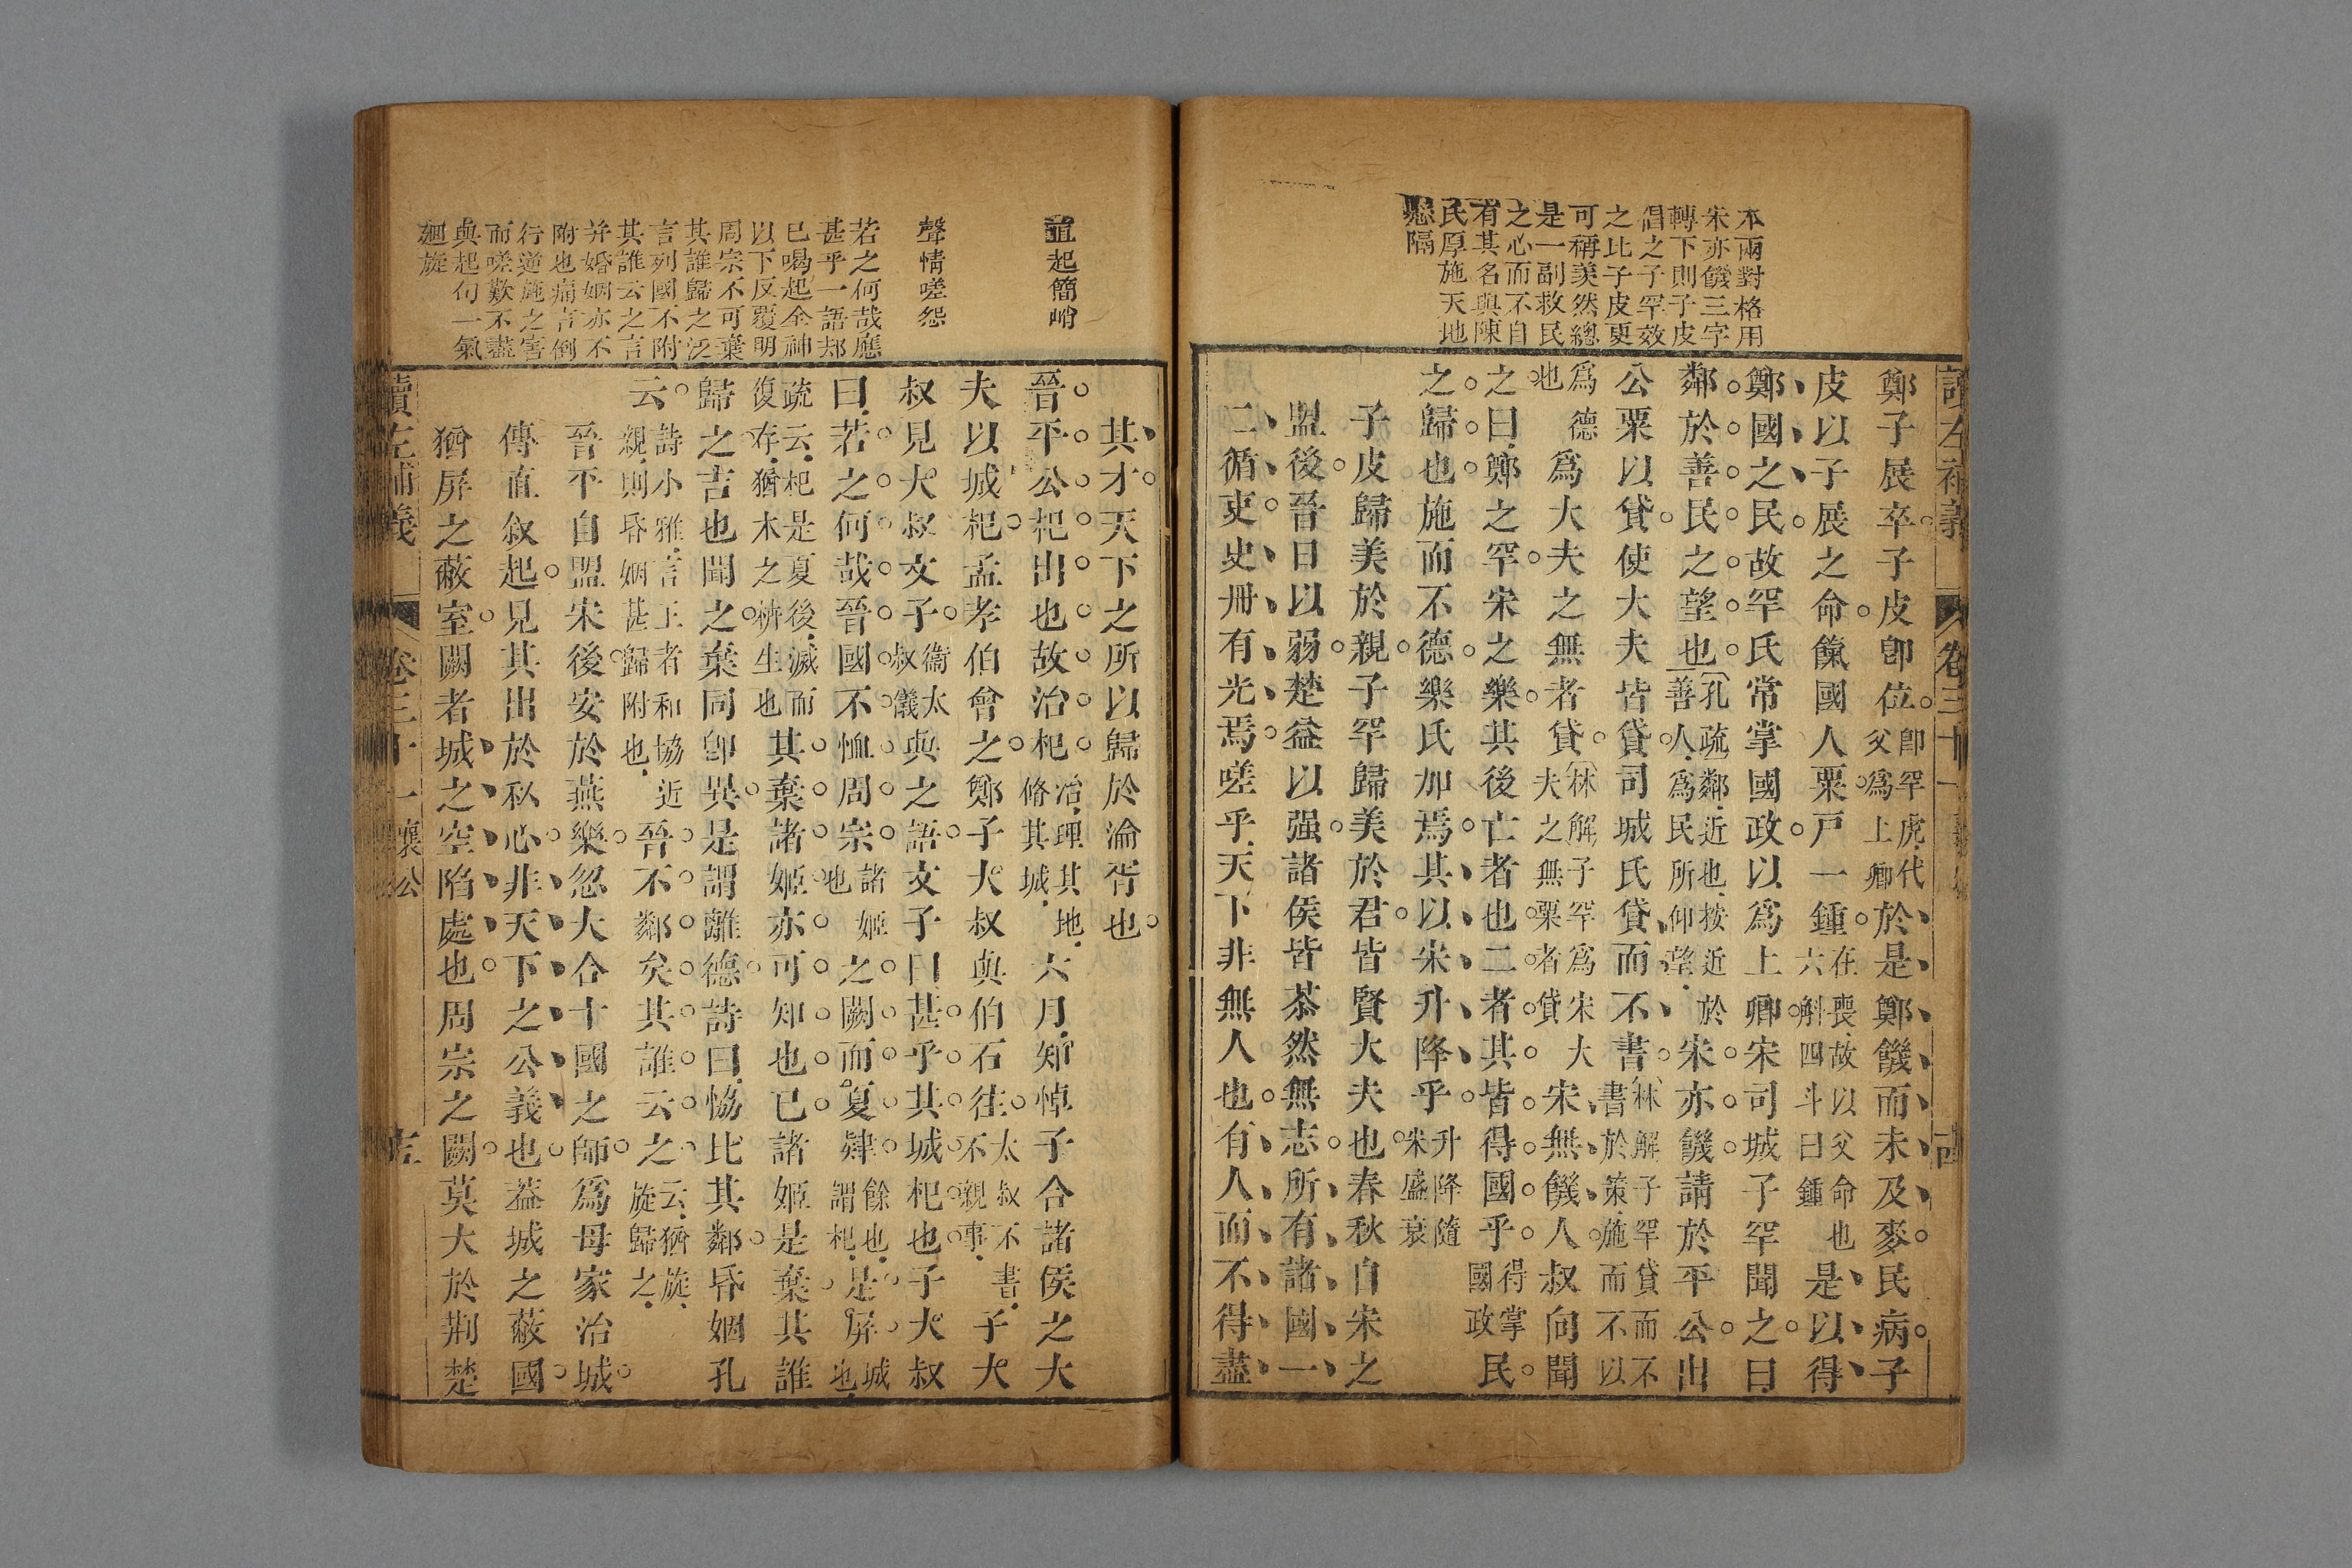 本兩對格用
宋亦饑三字
轉下則子皮
倡之子罕效
之比子皮更
可稱美然總
是一副救民
之心而不自
有其名與陳
氏厚施天地
懸隔
讀左補義 卷三十一 襄公 古
鄭子展卒子皮卽位卽罕虎代父爲上卿於是鄭饑而未及麥民病子
皮以子展之命餼國人粟戸一鍾在喪故以父命也六斛四斗曰鍾是以得
鄭國之民故罕氏常掌國政以爲上卿宋司城子罕聞之曰
鄰於善民之望也孔疏鄰近也按近於善人爲民所仰望宋亦饑請於平公出
公粟以貸使大夫皆貸司城氏貸而不書林解子罕貸而不書於策施而不以
爲德也爲大夫之無者貸林解子罕爲宋大夫之無粟者貸宋無饑人叔向聞
之曰鄭之罕宋之樂其後亡者也二者其皆得國乎得掌國政民
之歸也施而不德樂氏加焉其以宋升降乎升降隨宋盛衰
子皮歸美於親子罕歸美於君皆賢大夫也春秋自宋之
盟後晉日以弱楚益以强諸侯皆苶然無志所有諸國一
二循吏史册有光焉嗟乎天下非無人也有人而不得盡
直起簡峭
聲情嗟怨
若之何哉應
甚乎一語却
已喝起全神
以下反覆明
周宗不可棄
其誰歸之泛
言列國不附
其誰云之言
并婚姻亦不
附也痛言倒
行逆施之害
而嗟歎不盡
與起句一氣
廻旋
其才天下之所以歸於淪胥也
晉平公杞出也故治杞治理其地脩其城六月知悼子合諸侯之大
夫以城杞孟孝伯會之鄭子大叔與伯石往太叔不書不親事子大
叔見大叔文子衞太叔儀與之語文子曰甚乎其城杞也子大叔
曰若之何哉晉國不恤周宗諸姬也之闕而夏肄餘也謂杞是屏城也
疏云杞是夏後滅而復存猶木之枿生也其棄諸姬亦可知也已諸姬是棄其誰
歸之吉也聞之棄同卽異是謂離德詩曰恊比其鄰昏姻孔
云詩小雅言王者和協近親則昏姻甚歸附也晉不鄰矣其誰云之云猶旋旋歸之
晉平自盟宋後安於燕樂忽大合十國之師爲母家治城
傳直叙起見其出於私心非天下之公義也葢城之蔽國
猶屏之蔽室闕者城之空陷處也周宗之闕莫大於荆楚
讀左補義 卷三十一 襄公 吉